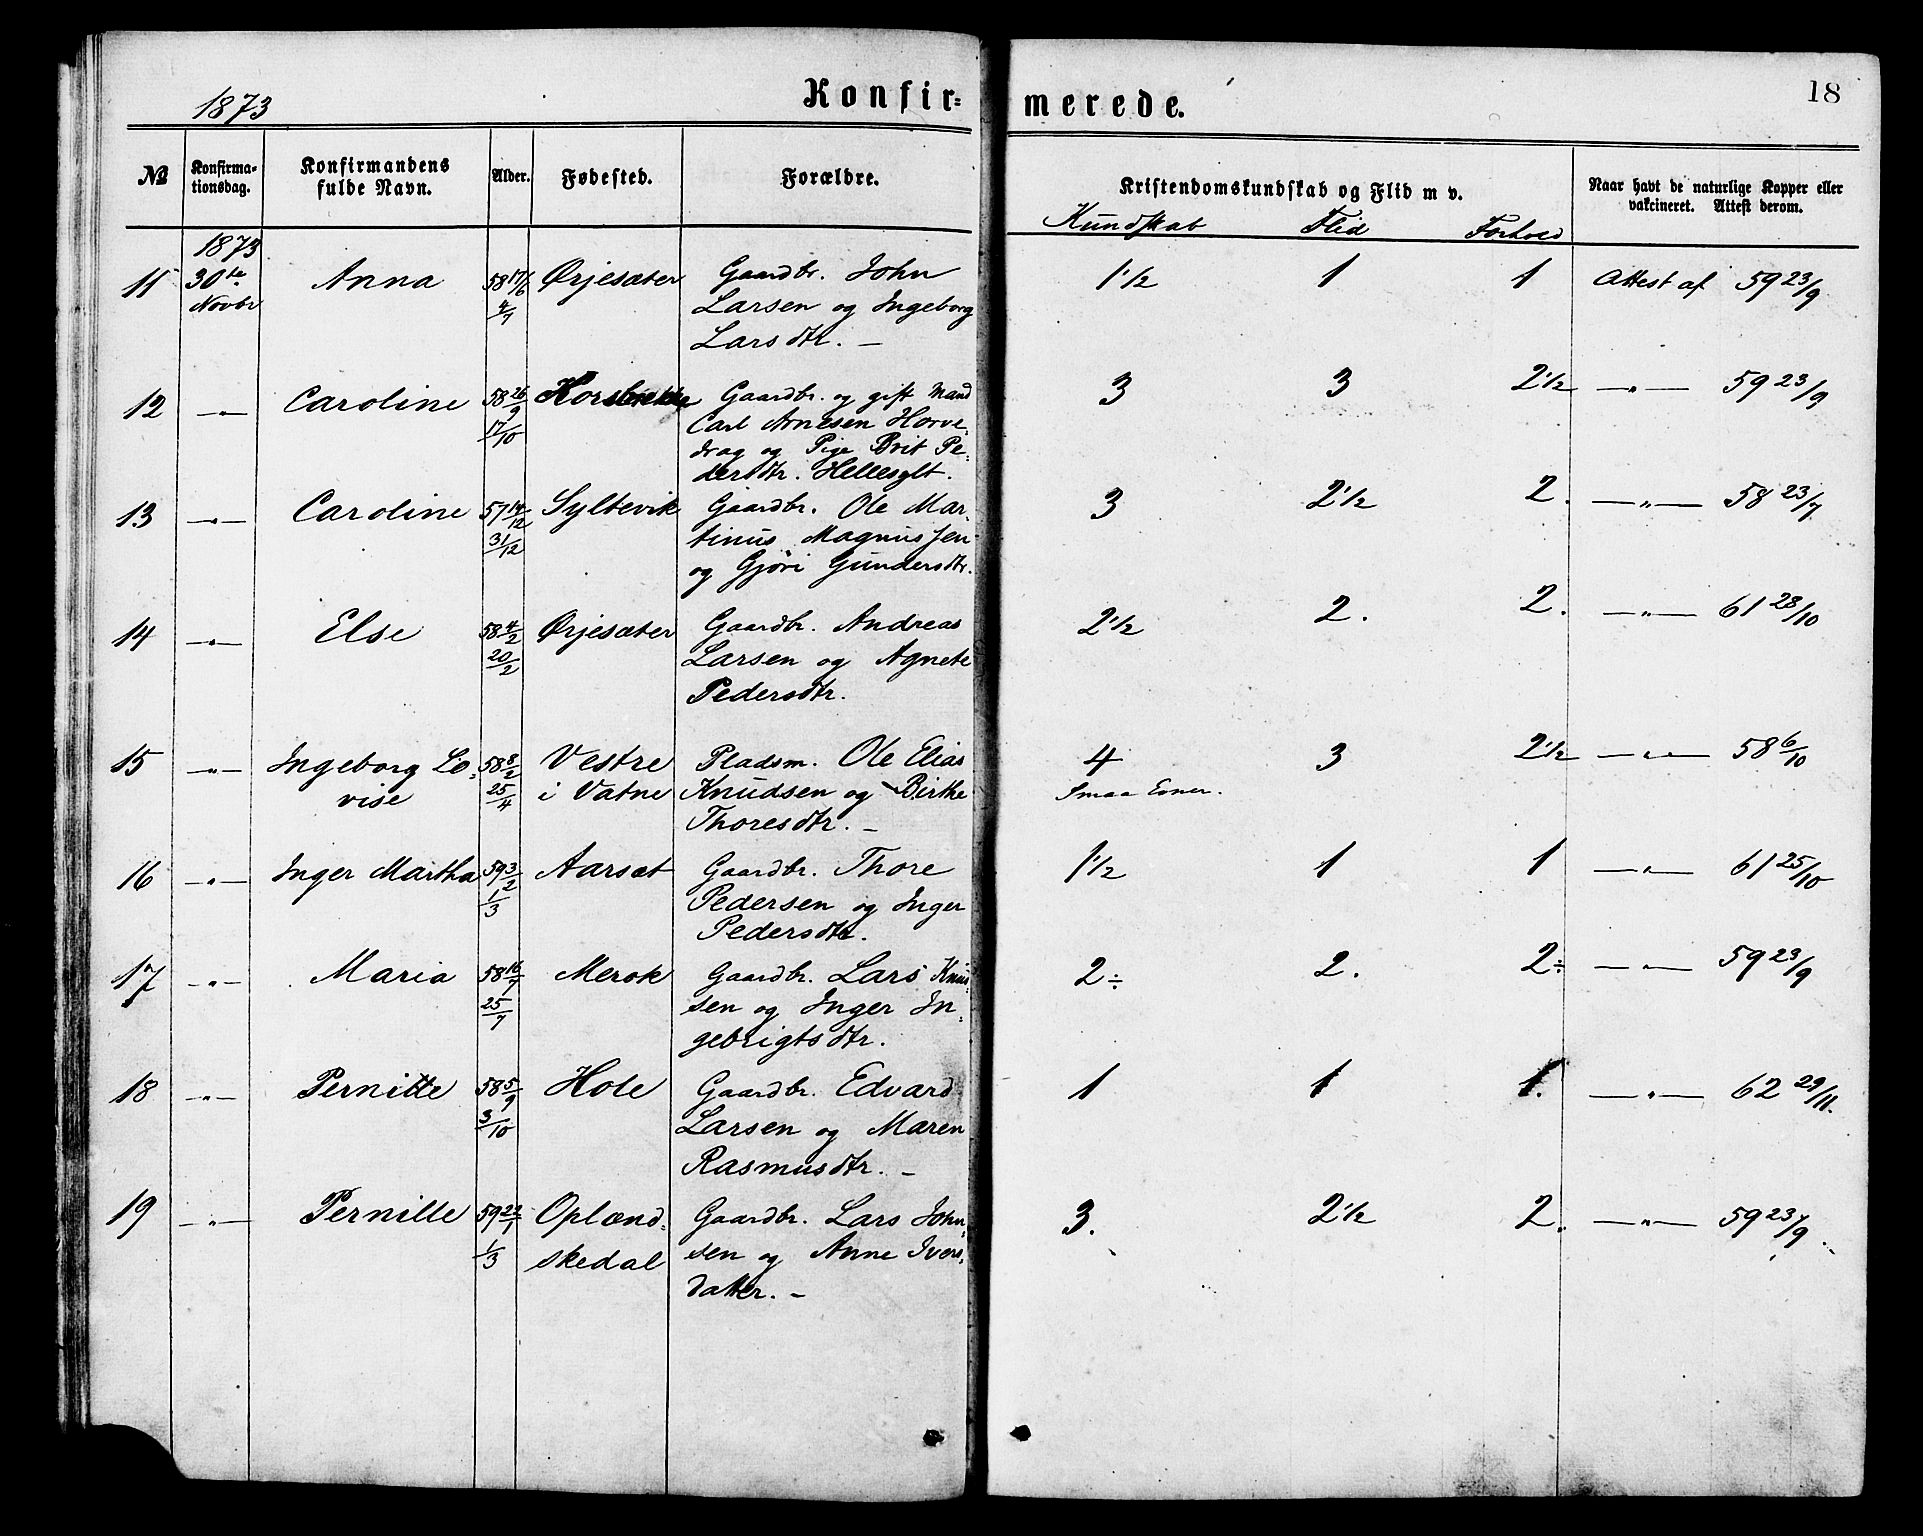 1873 Konfir= merede. 18
№ Konfirma= Konfirmandens Alder. Fødested. Forældre. Kristendomskundskab og Flid m v. Naar havt de naturlige Kopper eller
tionsdag. fulde Navn. vakcineret. Attest derom.
Kundskab Flid Forhold
1873
11 30te Anna 58 17/6 Ørjesæter Gaardbr. John 1 1/2 1 1 Attest af 59 23/9
Novbr 4/7 Larsen og Ingeborg
Larsdtr. —
12 —„— Caroline 58 26/9 Gaardbr. og gift Mand 3 3 2 1/2 —„— 59 23/9
17/10 Carl Arnesen Horve=
drag og Pige Brit Pe=
dersdtr. Hellesylt.
13 —„— Caroline 57 14/12 Syltevik Gaardbr. Ole Mar= 3 2 1/2 2. —„— 58 23/7
31/12 tinus Magnussen
og Gjøri Gundersdtr.
14 —„— Else 58 4/2 Ørjesæter Gaardbr. Andreas 2 1/2 2. 2. —„— 61 28/10
20/2 Larsen og Agnete
Pedersdtr.
15 —„— Ingeborg Lo= 58 8/2 Vestre Pladsm. Ole Elias 4 3 2 1/2 —„— 58 6/10
vise 25/4 i Vatne Knudsen og Birthe Smaa Evner.
Thoresdtr. —
16 —„— Inger Martha 59 3/2 Aarsæt Gaardbr. Thore 1 1/2 1 1 —„— 61 25/10
1/3 Pedersen og Inger
Pedersdtr.
17 —„— Maria 58 16/7 Merok Gaardbr. Lars Knud= 2÷ 2. 2÷ —„— 59 23/9
25/7 sen og Inger In=
gebrigtsdtr.
18 —„— Pernille 58 5/9 Hole Gaardbr. Edvard 1 1 1. —„— 62 29/11.
3/10 Larsen og Maren
Rasmusdtr. —
19 —„— Pernille 59 22/1 Oplænd= Gaardbr. Lars John= 3. 2 1/2 2. —„— 59 23/9
1/3 skedal sen og Anne Ivers=
datter. —